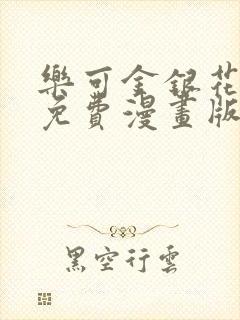 樂可金銀花
免費漫畫版
黑空行雲